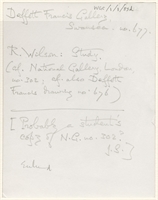 Deffett Francis Gallery
Swansea. no. 677.
R. Wilson: Study.
(cf. National Gallery, London
no. 302; cf. also Deffett
Francis Drawing no 676)
[Probably a
copy of N.G. no. 302?